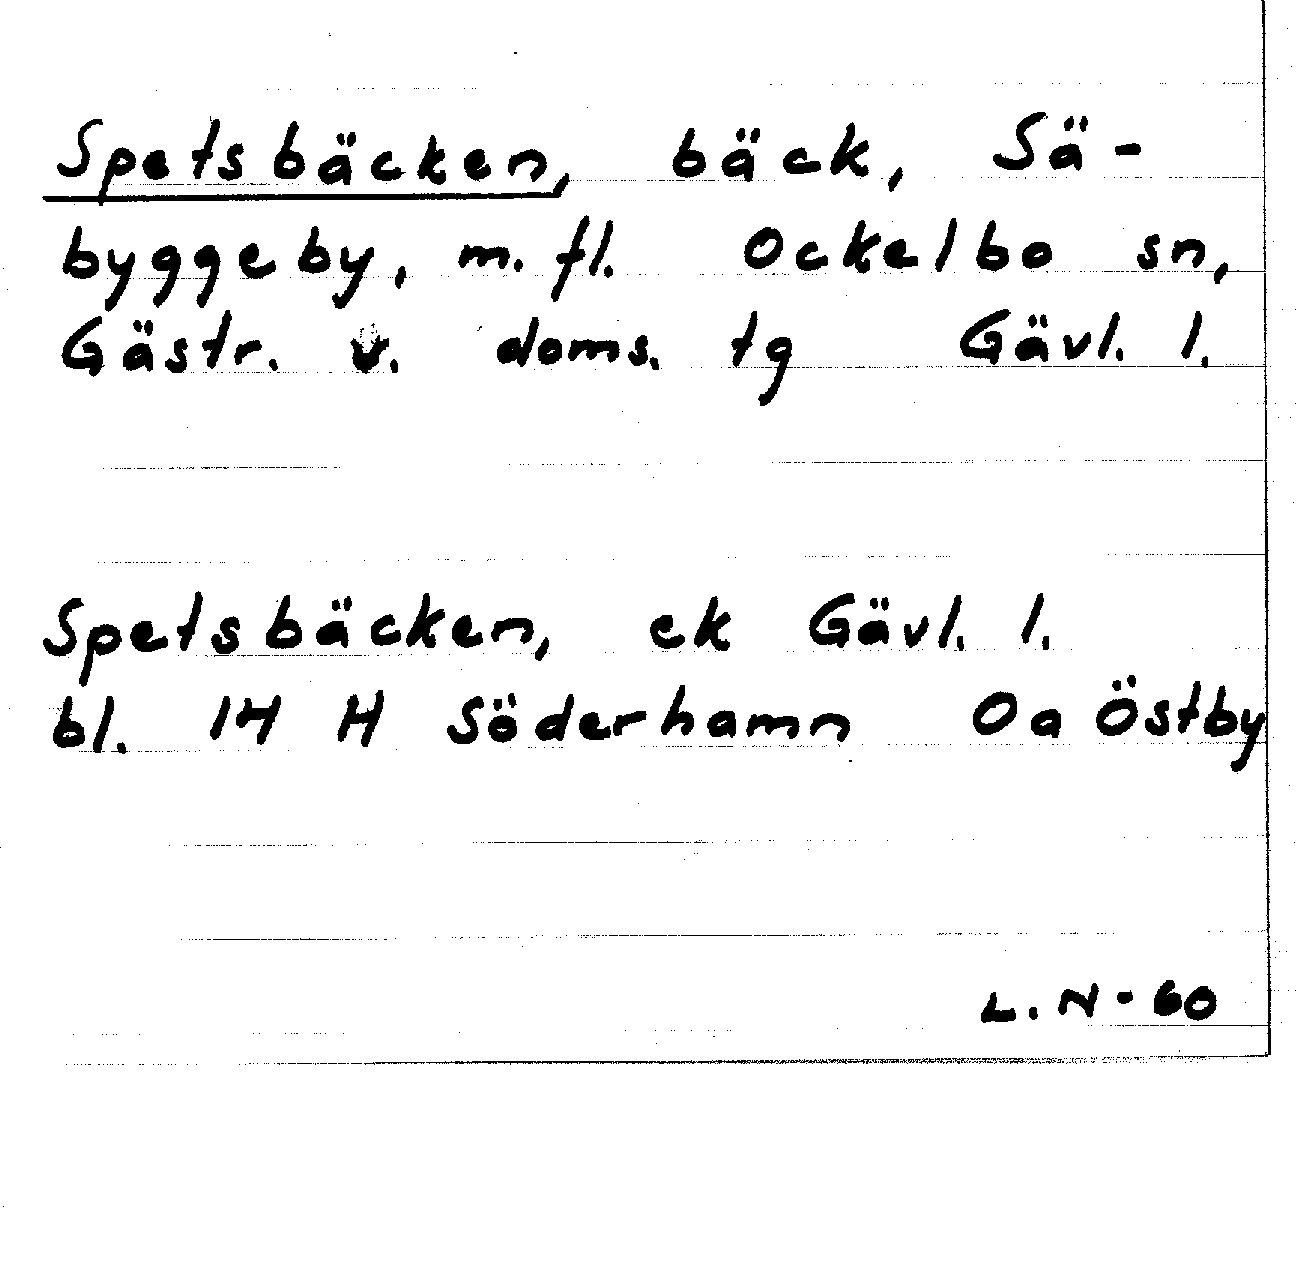 Spetsbäcken, bäck, Sä-
byggeby, m. fl. Ockelbo sn,
Gästr. v. doms. tg Gävl. l.
Spetsbäcken, ek Gävl. l.
bl. 14 H Söderhamn Oa Östby
L. N - 60